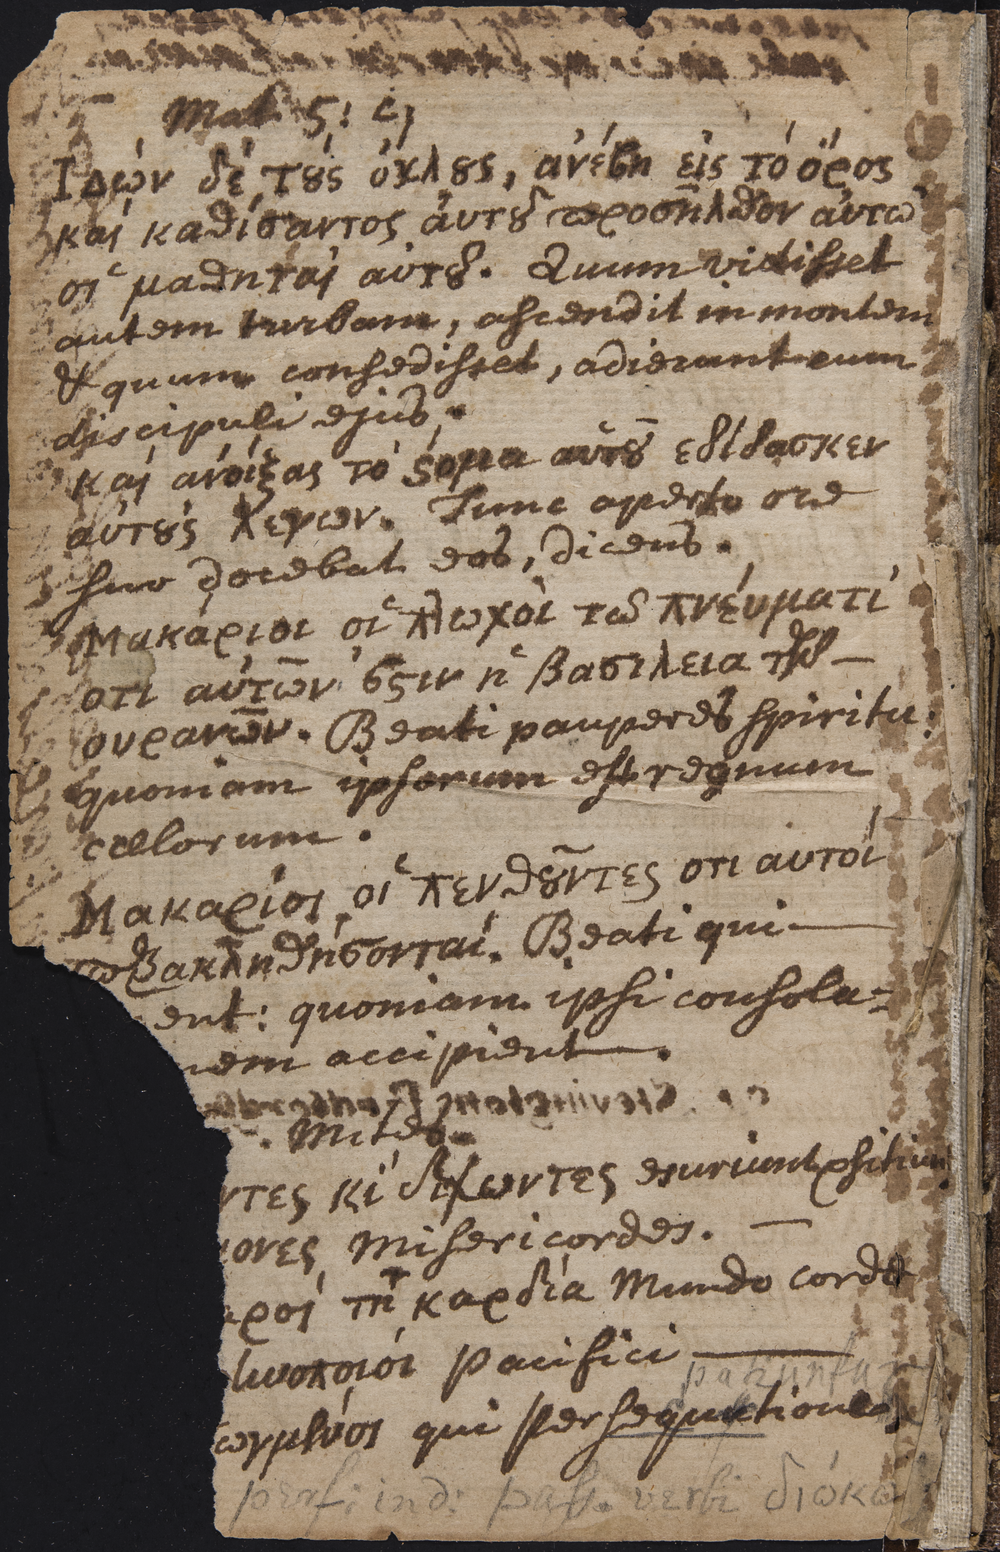 Mat 5: c,
Ιδών δέ τȣ́ς ὀχλȣς, ἀνέβη εἰς τό ὄρος
καί καθίσαντος ἀυτȣ͂ προσῆλθον ἀυτῶ
οἱ μαθηταί αὐτȣ͂. Quum vidisset
autem turbam, ascendit in montem
& quum consedisset, adierunt eum
discipuli ejus.
καί ανοίξας τό ϛόμα αυτȣ͂ εδίδασκεν
αὐτȣ́ς λεγων. Tunc aperto ore
suo docebat eos, dicens.
Μακάριοι οἱ πτωχοὶ τῶ πνέυματί
οτι αὐτῶν εϛιν ἡ βασιλεια τῶν
ουρανῶν. Beati pauperes spiritu:
quoniam ipsorum est regnum
cælorum.
Μακαρίοι οἱ πενθȣ͂ντες οτι αυτοί
παρακληθήσονταί. Beati qui
ent: quoniam ipsi consola=
nem accipient.
Mites.
ντες κί διψωντες esuriunt & sitiun
μονες Misericordes.
αροί τῆ καρδία Mundo corde
ηνοποιόι pacifici
patiuntur
ωγμένοι qui persequutiones
perf: ind: pass. verbi διώκω